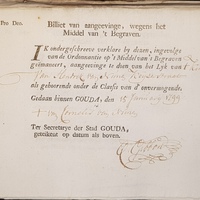 Pro Deo.
Billiet van aangeevinge, wegens het
Middel van 't Begraven.
IK ondergeschreeve verklare by deezen, ingevolge
van de Ordonnantie op 't Middel van 't Begraven
geëmaneert, aangeevinge te doen van het Lyk van
als gehoorende onder de Classe van d'onvermogende.
Gedaan binnen GOUDA, den 15 January
Ter Secretarye der Stad GOUDA,
geteekent op datum als boven.